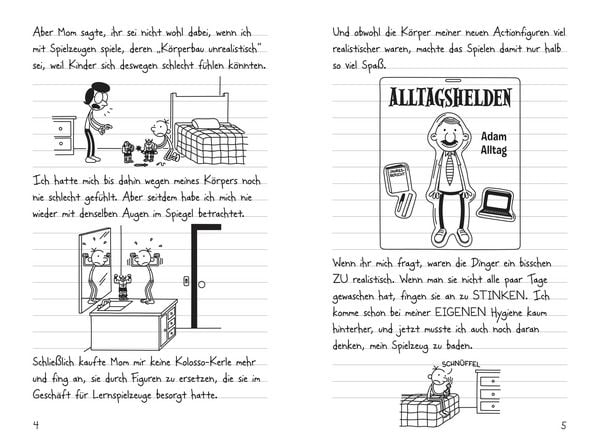 Aber Mom sagte, ihr sei nicht wohl dabei, wenn ich
mit Spielzeugen spiele, deren „Körperbau unrealistisch“
sei, weil Kinder sich deswegen schlecht fühlen könnten.
Ich hatte mich bis dahin wegen meines Körpers noch
nie schlecht gefühlt. Aber seitdem habe ich mich nie
wieder mit denselben Augen im Spiegel betrachtet.
Schließlich kaufte Mom mir keine Kolosso-Kerle mehr
und fing an, sie durch Figuren zu ersetzen, die sie im
Geschäft für Lernspielzeuge besorgt hatte.
4
Und obwohl die Körper meiner neuen Actionfiguren viel
realistischer waren, machte das Spielen damit nur halb
so viel Spaß.
ALLTAGSHELDEN
Adam
Alltag
Wenn ihr mich fragt, waren die Dinger ein bisschen
ZU realistisch. Wenn man sie nicht alle paar Tage
gewaschen hat, fingen sie an zu STINKEN. Ich
komme schon bei meiner EIGENEN Hygiene kaum
hinterher, und jetzt musste ich auch noch daran
denken, mein Spielzeug zu baden.
SCHNÜFFEL
5